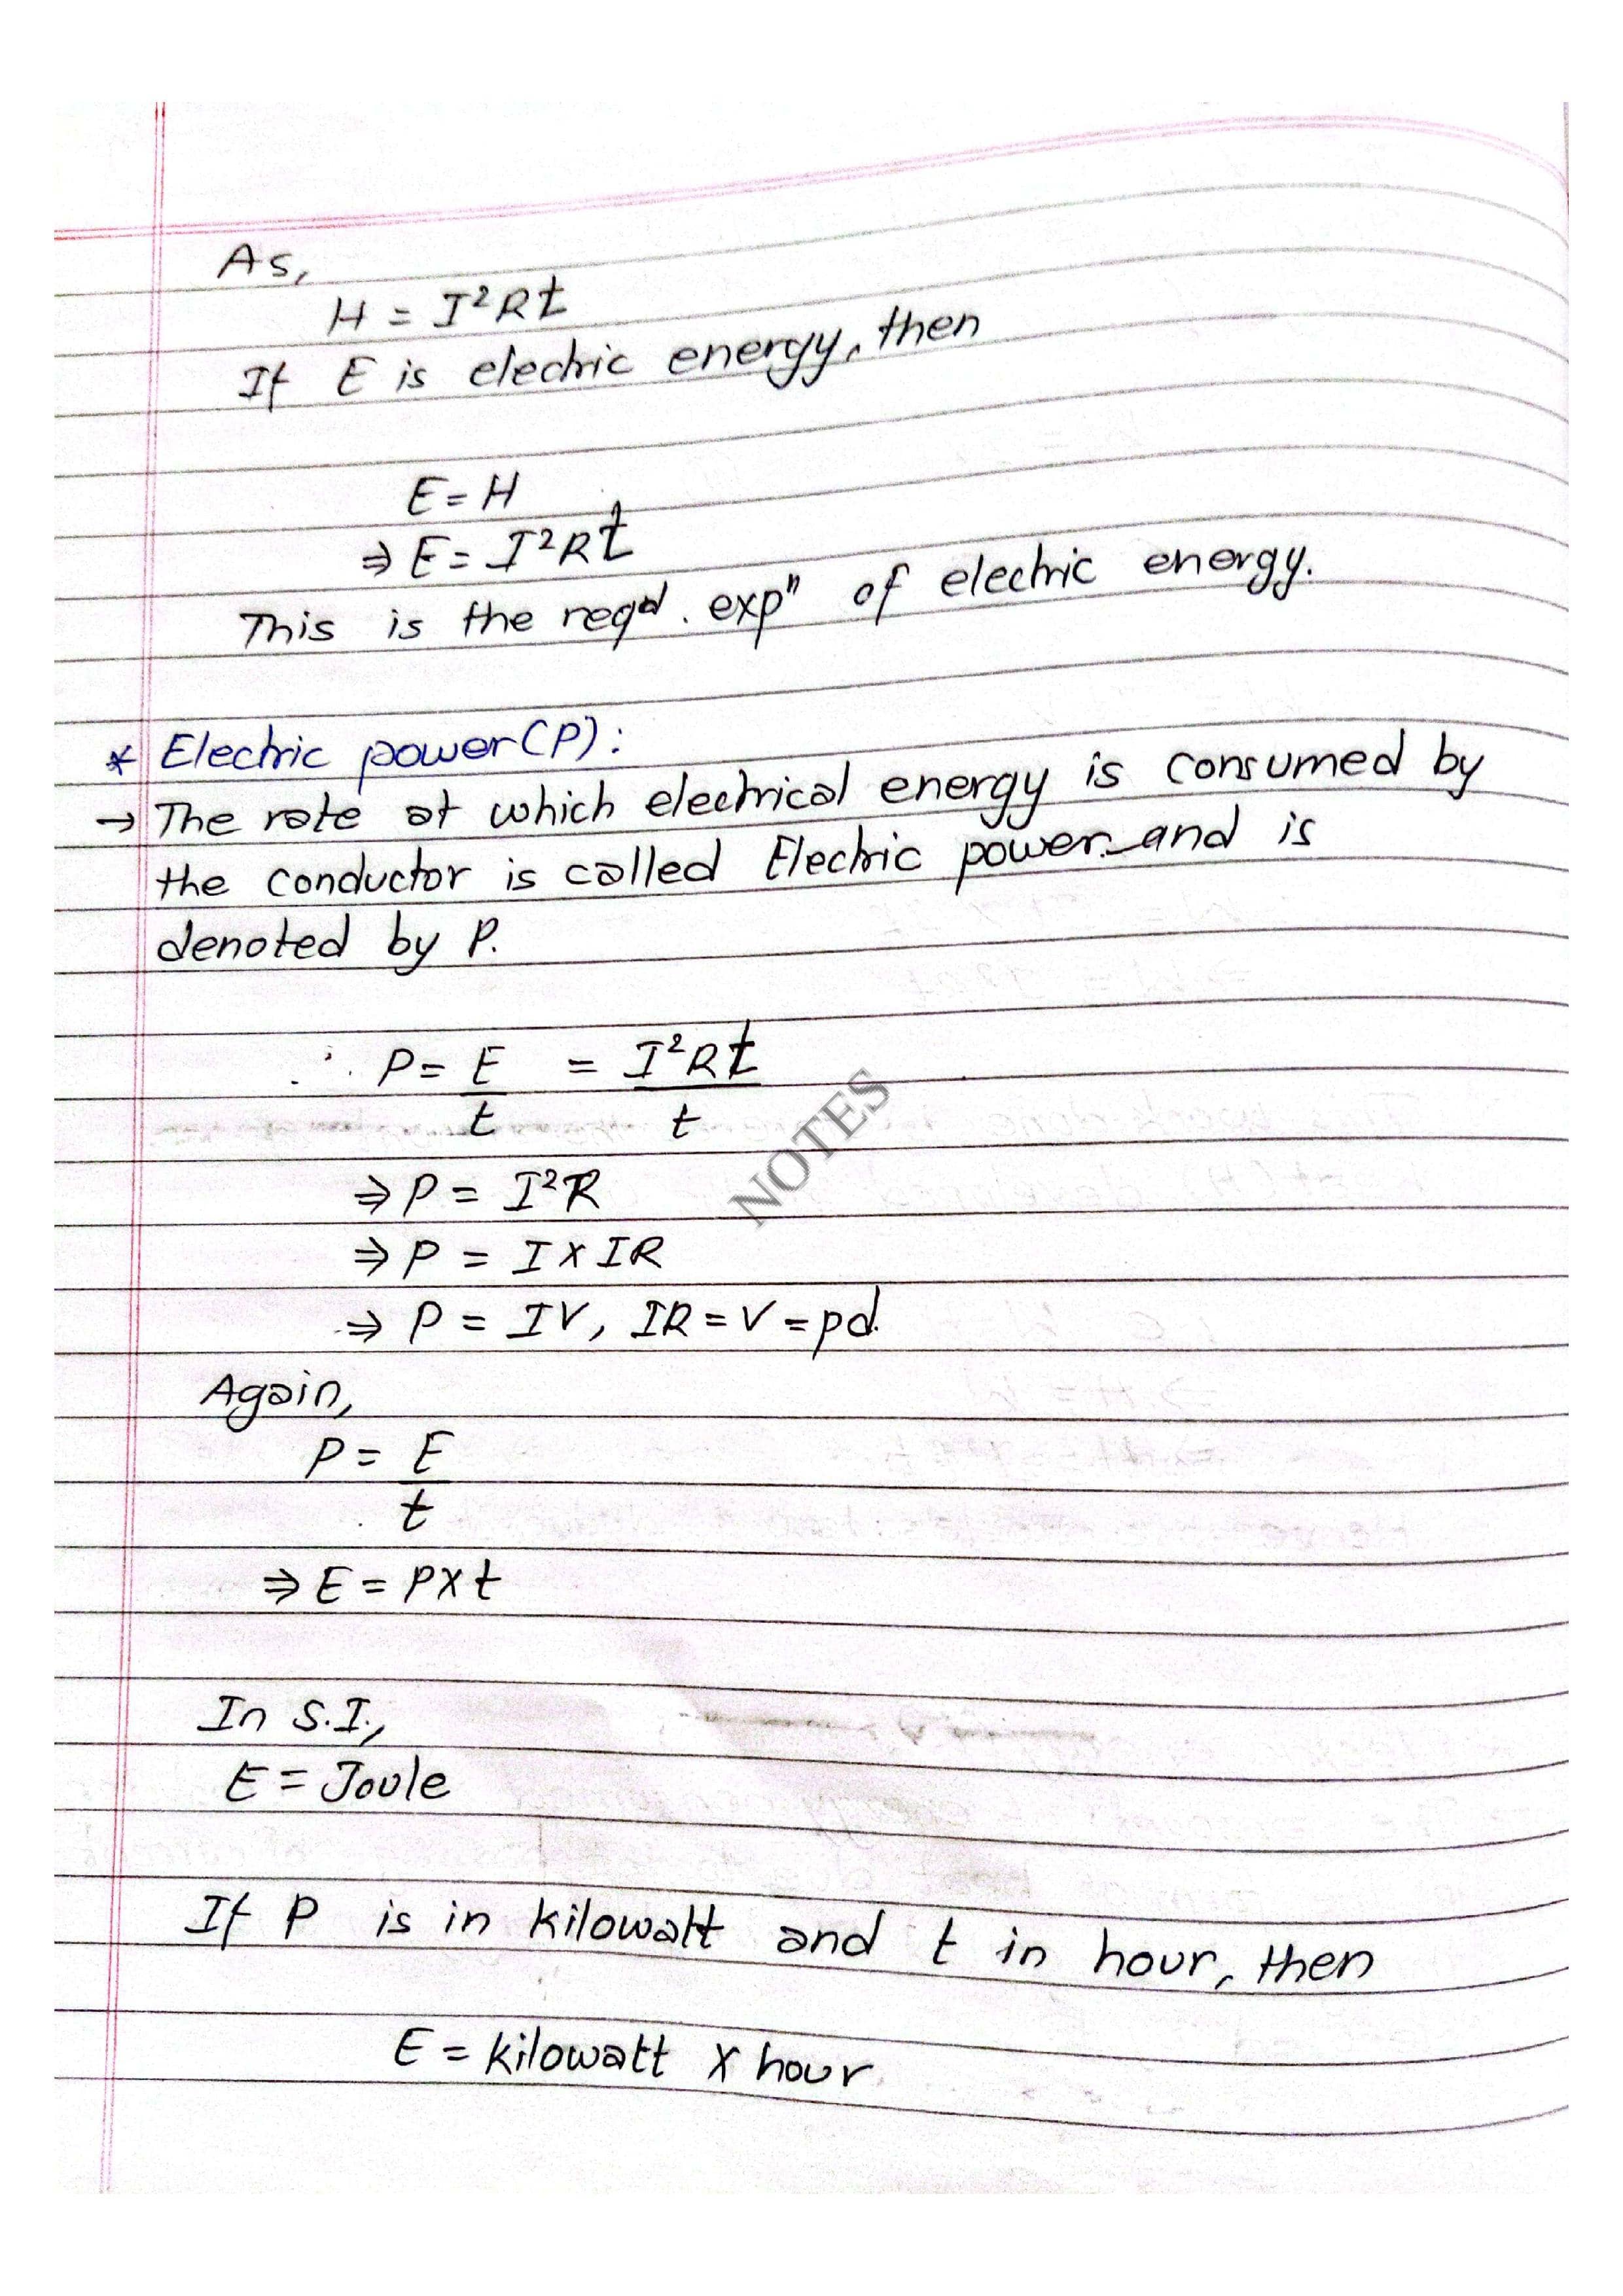 As,
H = I²Rt
If E is electric energy, then
E = H
⇒ E = I²Rt
This is the reqᵈ. expⁿ of electric energy.
* Electric power(P):
→ The rate at which electrical energy is consumed by
the conductor is called Electric power and is
denoted by P.
∴ P = E/t = I²Rt/t
NOTES
⇒ P = I²R
⇒ P = I X IR
⇒ P = IV, IR = V = pd.
Again,
P = E/t
⇒ E = P X t
In S.I.,
E = Joule
If P is in kilowatt and t in hour, then
E = kilowatt X hour